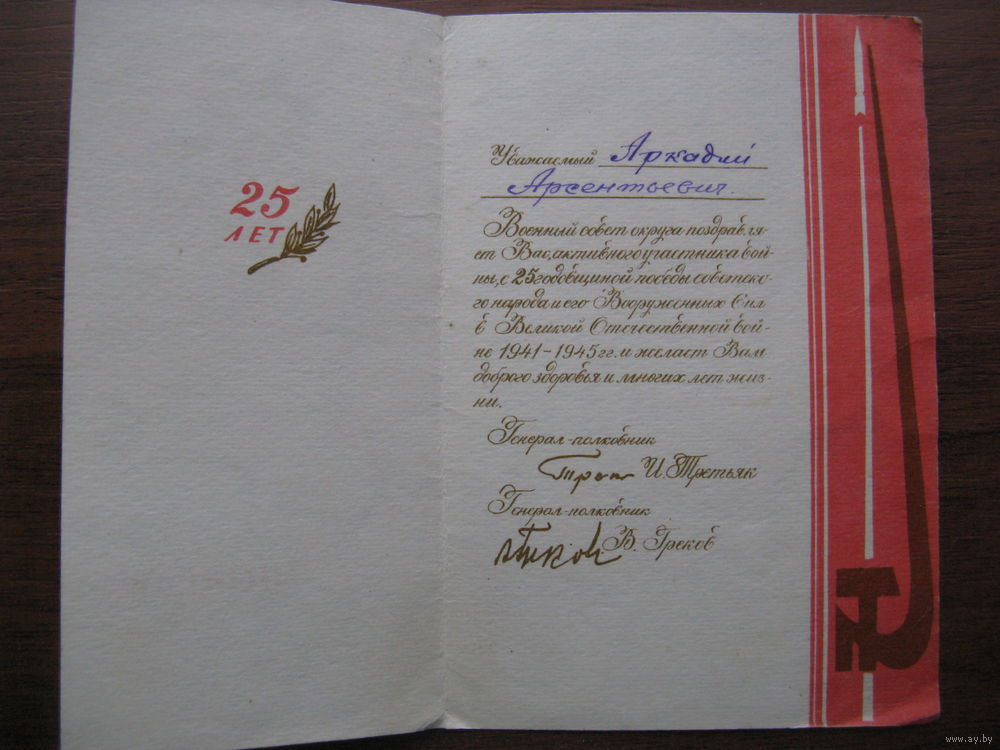 25
ЛЕТ
Уважаемый Аркадий
Арсентьевич.
Военный совет округа поздравля-
ет Вас, активного участника вой-
ны, с 25 годовщиной победы советско-
го народа и его Вооруженных Сил
в Великой Отечественной вой-
не 1941-1945 гг. и желает Вам
доброго здоровья и многих лет жиз-
ни.
Генерал-полковник
И. Третьяк
Генерал-полковник
Греков В. Греков
www.ay.by